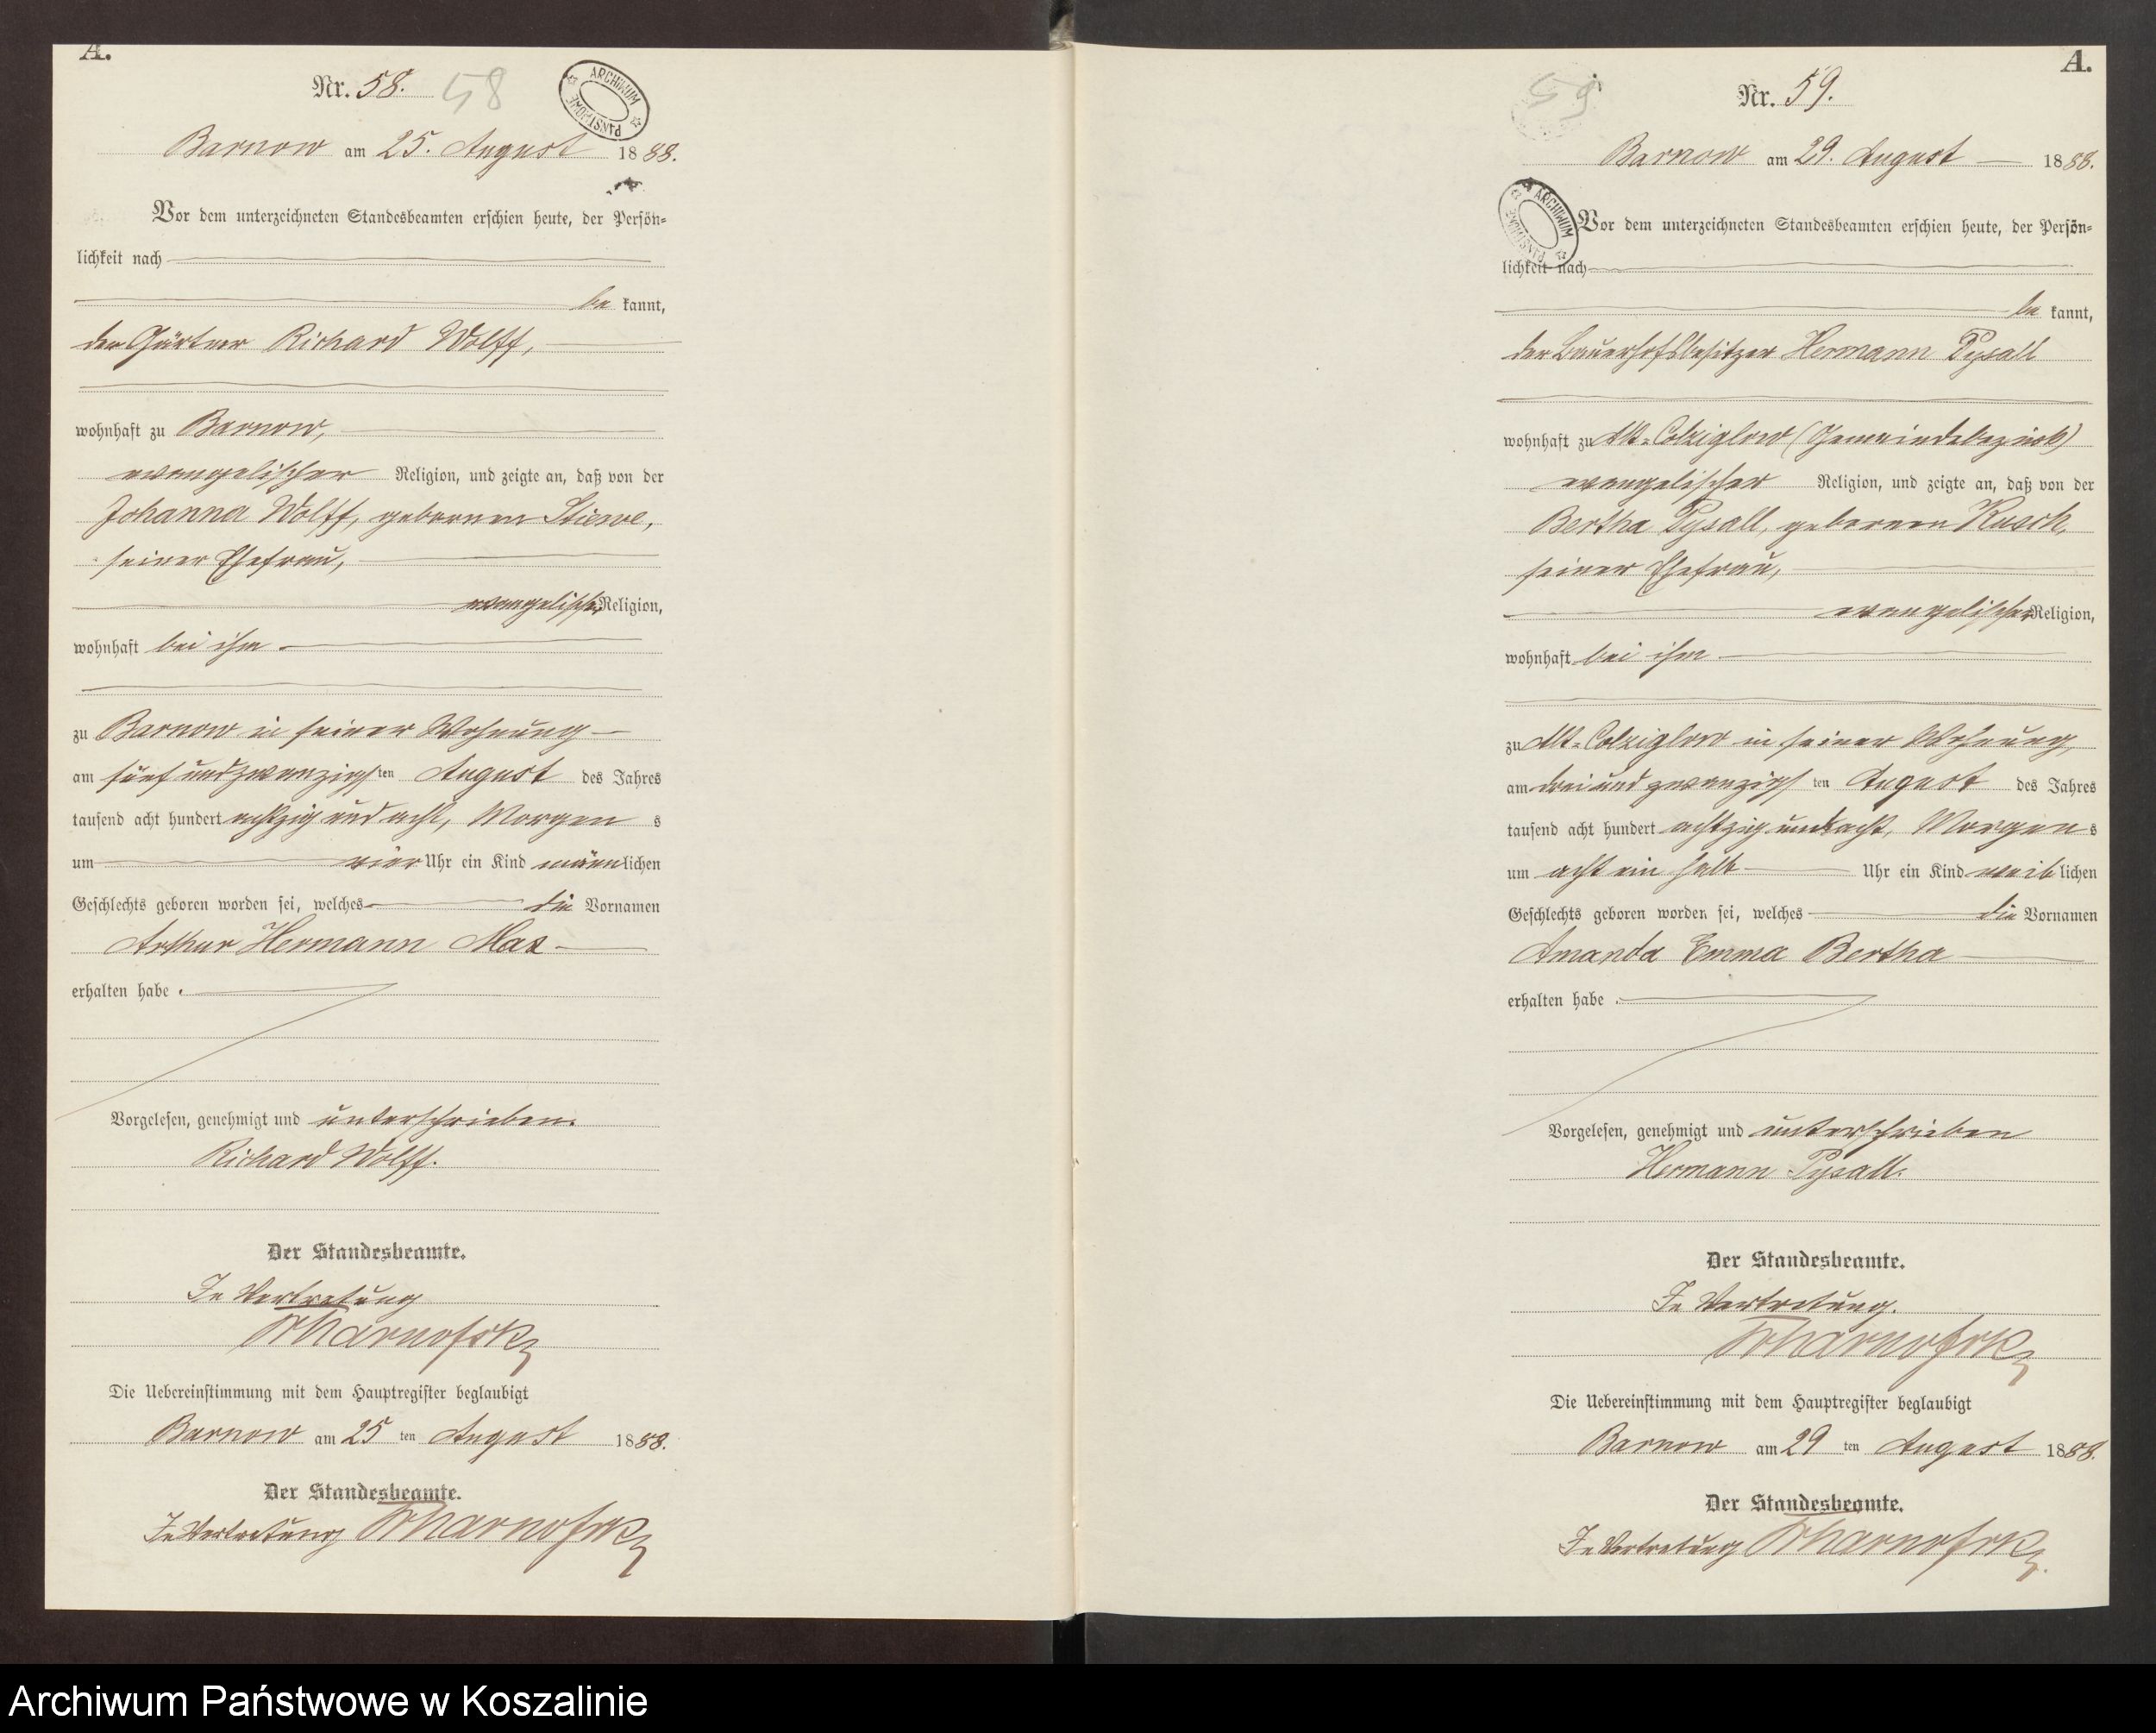 A.
Nr. 58. 58
ARCHIWUM PAŃSTWOWE
Barnow am 25. August 1888.
Vor dem unterzeichneten Standesbeamten erschien heute, der Persön=
lichkeit nach
be kannt,
der Gärtner Richard Wolff,
wohnhaft zu Barnow,
evangelischer Religion, und zeigte an, daß von der
Johanna Wolff, geborenen Stiewe,
seiner Ehefrau,
evangelischer Religion,
wohnhaft bei ihm
zu Barnow in seiner Wohnung
am fünf und zwanzigsten August des Jahres
tausend acht hundert achtzig und acht, Morgens
um vier Uhr ein Kind männlichen
Geschlechts geboren worden sei, welches die Vornamen
Arthur Hermann Max
erhalten habe.
Vorgelesen, genehmigt und unterschrieben.
Richard Wolff.
Der Standesbeamte.
In Vertretung
Die Uebereinstimmung mit dem Hauptregister beglaubigt
Barnow am 25 ten August 1888.
Der Standesbeamte.
In Vertretung
A.
59
Nr. 59.
Barnow am 29. August 1888.
ARCHIWUM PAŃSTWOWE
Vor dem unterzeichneten Standesbeamten erschien heute, der Persön=
lichkeit nach
be kannt,
der Bauerhofsbesitzer Hermann Pysall
wohnhaft zu Alt=Colziglow (Gemeindebezirk)
evangelischer Religion, und zeigte an, daß von der
Bertha Pysall, geborenen Kusch,
seiner Ehefrau,
evangelischer Religion,
wohnhaft bei ihm
zu Alt=Colziglow in seiner Wohnung,
am drei und zwanzigsten August des Jahres
tausend acht hundert achtzig und acht, Morgens
um acht ein halb Uhr ein Kind weiblichen
Geschlechts geboren worden sei, welches die Vornamen
Amanda Emma Bertha
erhalten habe.
Vorgelesen, genehmigt und unterschrieben
Hermann Pysall.
Der Standesbeamte.
In Vertretung.
Die Uebereinstimmung mit dem Hauptregister beglaubigt
Barnow am 29 ten August 1888.
Der Standesbeamte.
In Vertretung
Archiwum Państwowe w Koszalinie